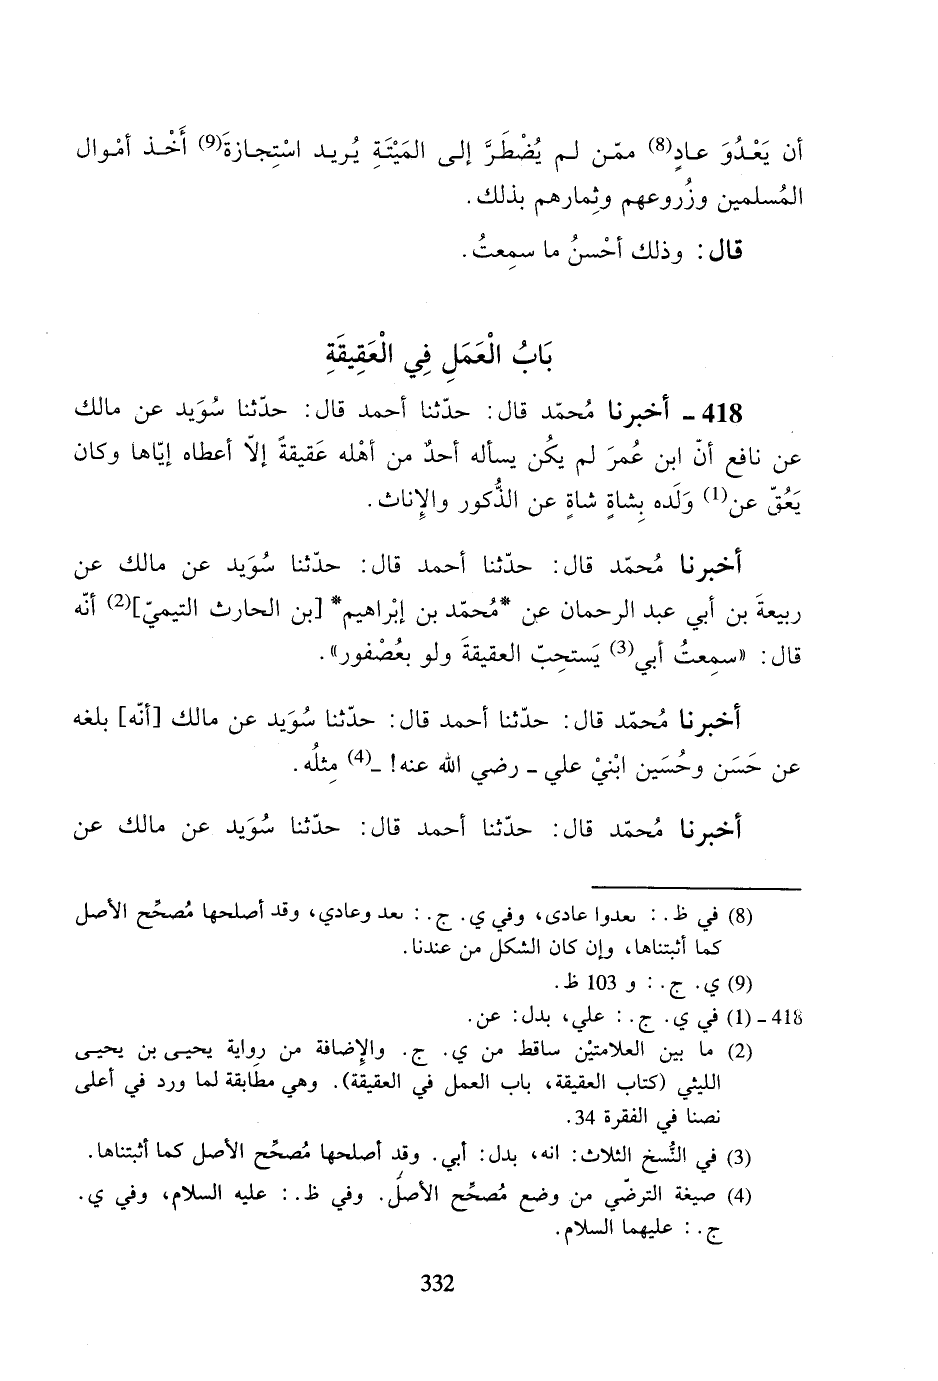 أن يَعْدُوَ عادٍ(8) ممّن لم يُضْطَرَّ إلى المَيْتَةِ يُريد اسْتِجازةَ(9) أَخْذ أمْوال
المُسلمين وزُروعهم وثِمارهم بذلك.
قال: وذلك أحْسنُ ما سمِعتُ.
بَابُ الْعَمَلِ فِي الْعَقِيقَةِ
418 ـ أخبرنا مُحمّد قال: حدّثنا أحمد قال: حدّثنا سُوَيد عن مالك
عن نافع أنّ ابن عُمرَ لم يكُن يسأله أحدٌ من أهْله عَقيقةً إلاّ أعطاه إيّاها وكان
يَعُقّ عن(1) وَلَده بِشاةٍ شاةٍ عن الذُّكور والإناث.
أخبرنا مُحمّد قال: حدّثنا أحمد قال: حدّثنا سُوَيد عن مالك عن
ربيعةَ بن أبي عبد الرحمان عن *مُحمّد بن إبْراهيم* [بن الحارث التيميّ](2) أنّه
قال: «سمِعتُ أبي(3) يَستحِبّ العقيقةَ ولو بعُصْفور».
أخبرنا مُحمّد قال: حدّثنا أحمد قال: حدّثنا سُوَيد عن مالك [أنّه] بلغه
عن حَسَن وحُسَين ابْنيْ علي ـ رضي الله عنه! ـ(4) مِثلُه.
أخبرنا مُحمّد قال: حدّثنا أحمد قال: حدّثنا سُوَيد عن مالك عن
(8) في ظ.: يعدوا عادى، وفي ي. ج.: بعد وعادي، وقد أصلحها مُصحِّح الأصل
كما أثبتناها، وإن كان الشكل من عندنا.
(9) ي. ج.: و 103 ظ.
418 ـ (1) في ي. ج.: علي، بدل: عن.
(2) ما بين العلامتيْن ساقط من ي. ج. والإضافة من رواية يحيى بن يحيى
الليثي (كتاب العقيقة، باب العمل في العقيقة). وهي مطابقة لما ورد في أعلى
نصنا في الفقرة 34.
(3) في النُّسخ الثلاث: انه، بدل: أبي. وقد أصلحها مُصحِّح الأصل كما أثبتناها.
(4) صيغة الترضّي من وضع مُصحِّح الأصل. وفي ظ.: عليه السلام، وفي ي.
ج.: عليهما السلام.
332